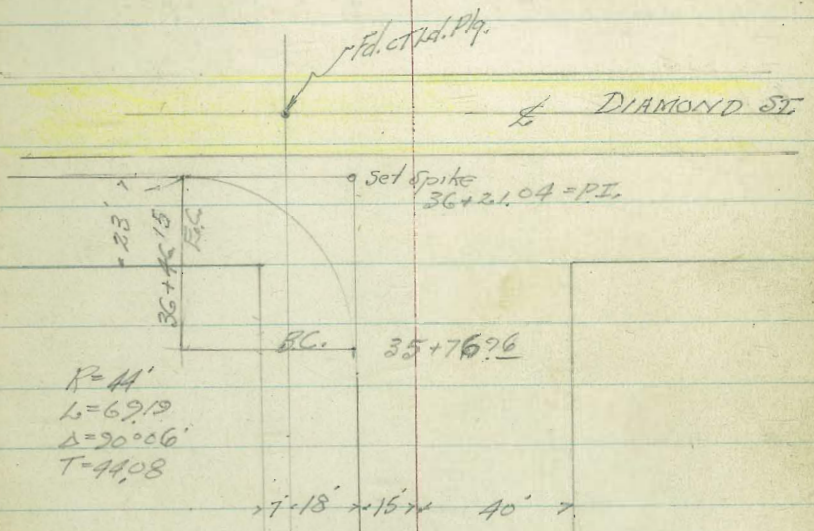 Fd. CT Ld. Plg.
℄ DIAMOND ST
Set Spike
36+21.04 = P.I.
23'
36+46 15
E.C.
B.C. 35+76 96
R=44'
L=69.19
Δ=90°06'
T=44.08
7' 18' 15' 40'